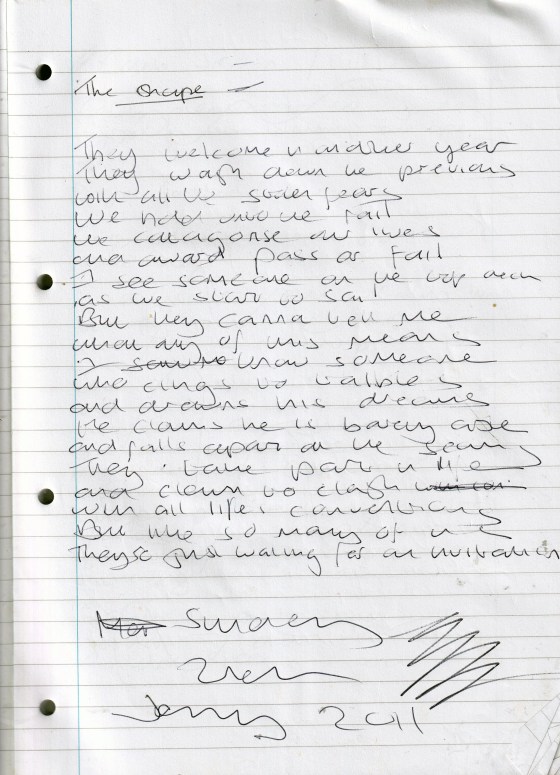 The Shape
They welcome in another year
They wash down the previous
with all the stolen fears
We hold onto the rail
We catagorise our lives
and award pass or fail
I see someone on the top deck
as we start to sail
But they canna tell me
what any of this means
I know someone
who clings to
and drowns his dreams
He claims he is barely alive
and falls apart at the seams
They take part in life
and claim to clash
with all life's conventions
But like so many of us
They're just waiting for an invitation
Sunday
2011